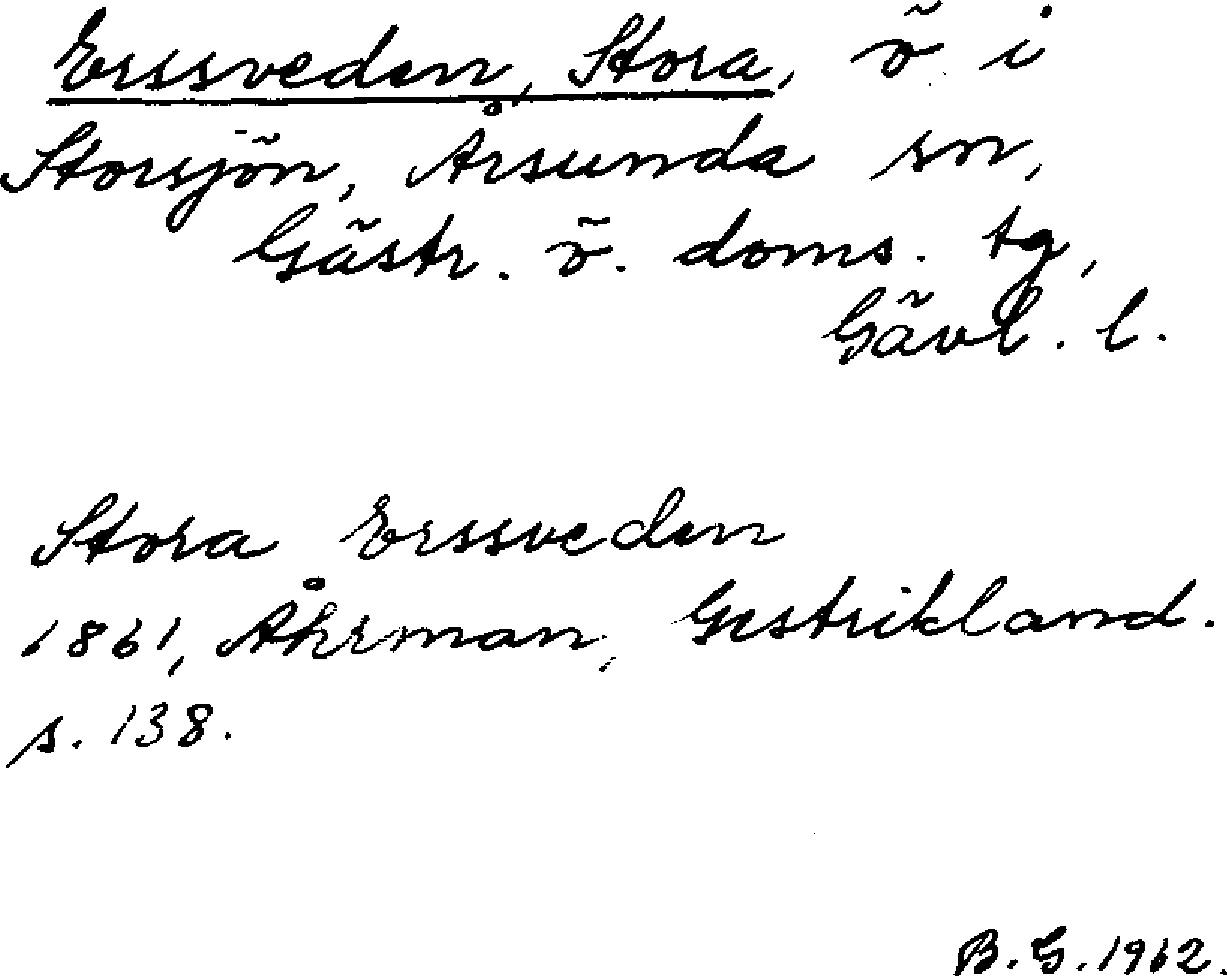 Erssveden, Stora, ö i
Storsjön, Årsunda sn,
Gästr. ö. doms. tg,
Gävl. l.
Stora Erssveden
1861, Åhrman, Gestrikland.
s. 138.
B. G. 1962.